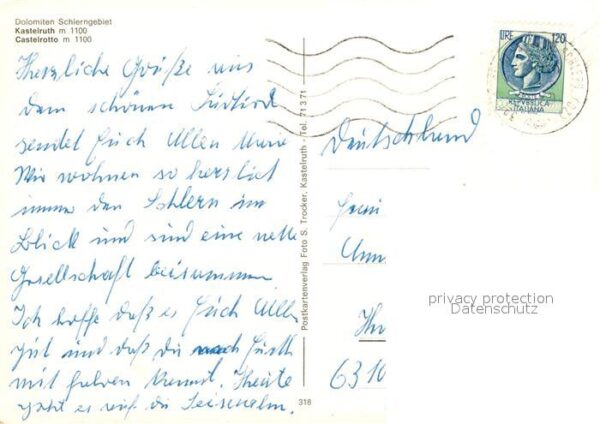 Dolomiten Schlerngebiet
Kastelruth m 1100
Castelrotto m 1100
Herzliche Grüße aus
dem schönen Südtirol
sendet Euch Allen
Wir wohnen so herrlich
immer den Schlern im
Blick und sind eine nette
Gesellschaft beisammen
Ich hoffe daß es Euch Allen
gut und daß du
mit fahren kannst. Heute
geht es auf die Seiseralm.
Postkartenverlag Foto S. Trocker, Kastelruth - Tel. 71371
318
LIRE 120
REPVBBLICA
ITALIANA
Deutschland
6310
privacy protection
Datenschutz